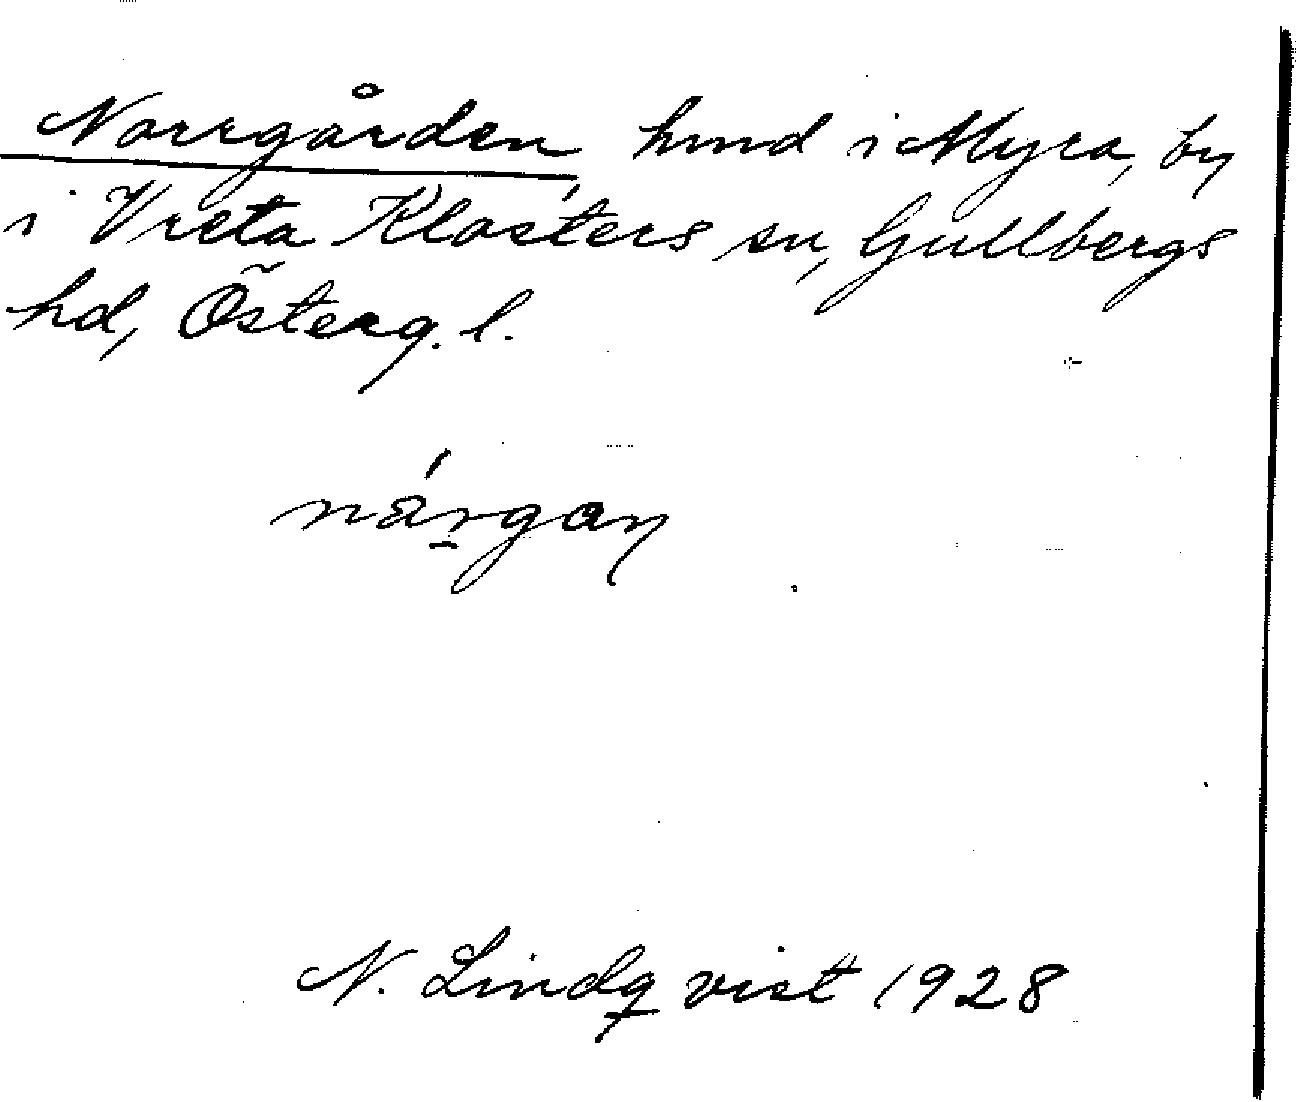 Norrgården, hmd i Myra, by
i Vreta Klosters sn, Gullbergs
hd, Österg. l.
nárgaɳ
N. Lindqvist 1928